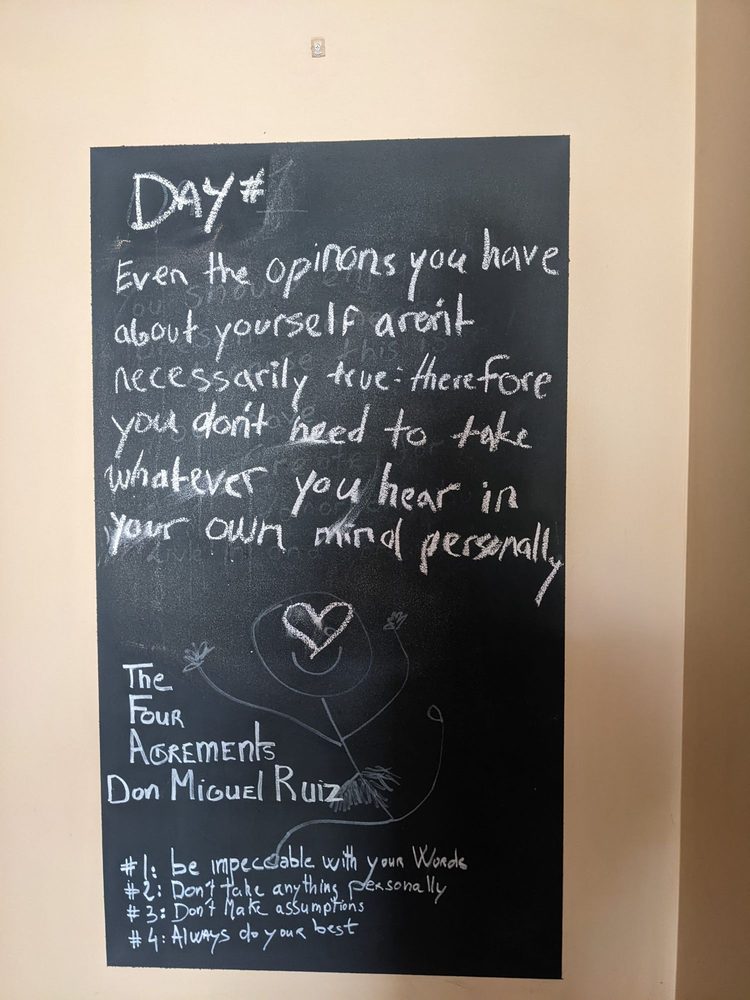 DAY #
Even the opinons you have
about yourself aren't
necessarily true: therefore
you don't need to take
whatever you hear in
your own mind personally
The
Four
AGREMENTS
Don MIGUEL RUIZ
#1: be impeccable with your Words
#2: Don't take anything personally
#3: Don't Make assumptions
#4: ALWAYS do your best